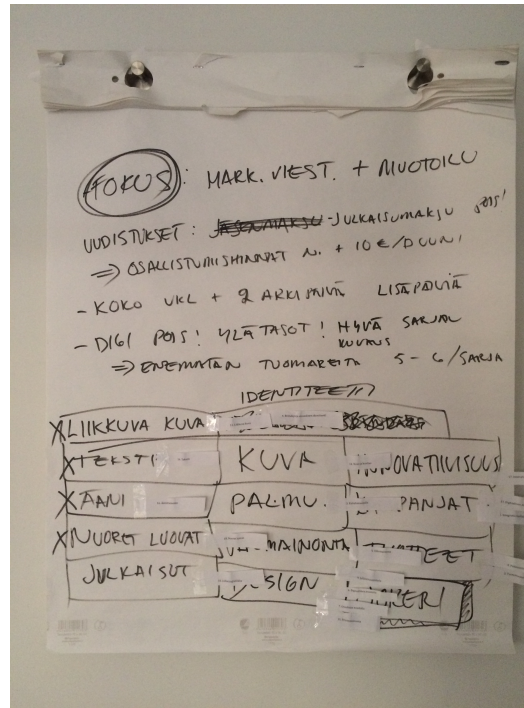 FOKUS: MARK. VIEST. + MUOTOILU
UUDISTUKSET: JÄSENMAKSU - JULKAISUMAKSU POIS!
=> OSALLISTUMISHINNAT N. + 10 €/DUUNI
- KOKO VKL + 2 ARKIPÄIVÄÄ LISÄPÄIVIÄ
- DIGI POIS! YLÄTASOT! HYVÄ SARJAN KUVAUS
=> ENEMMÄN TUOMAREITA 5-6/SARJA
IDENTITEETTI
X LIIKKUVA KUVA
X TEKSTI KUVA INNOVATIIVISUUS
X ÄÄNI PALMU. PANJAT
X NUORET LUOVAT MAINONTA
JULKAISUT SIGN KERI